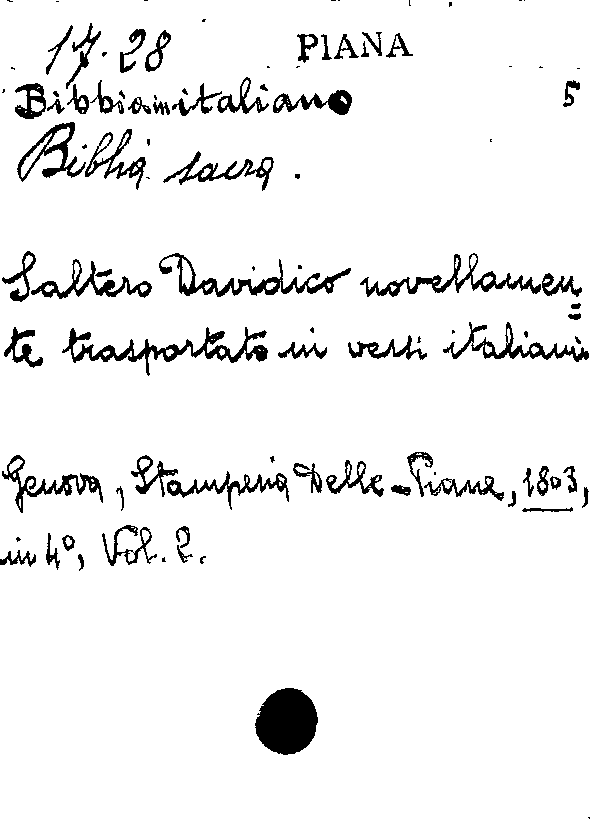 17.28 PIANA
Bibbia in italiano 5
Biblia sacra.
Saltero Davidico novellamen=
te trasportato in versi italiani
Genova, Stamperia Delle-Piane, 1803,
in 4°, Vol. 2.